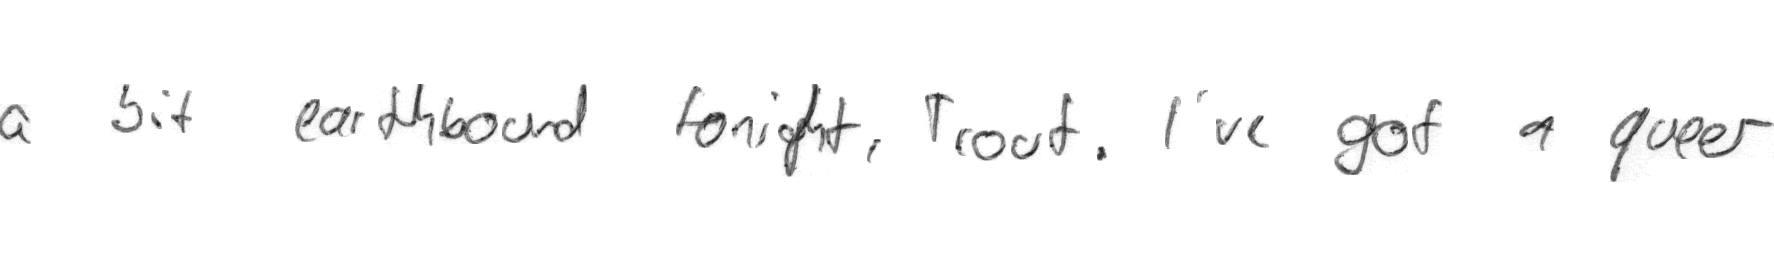 a bit earthbound tonight, Trout. I've got a queer